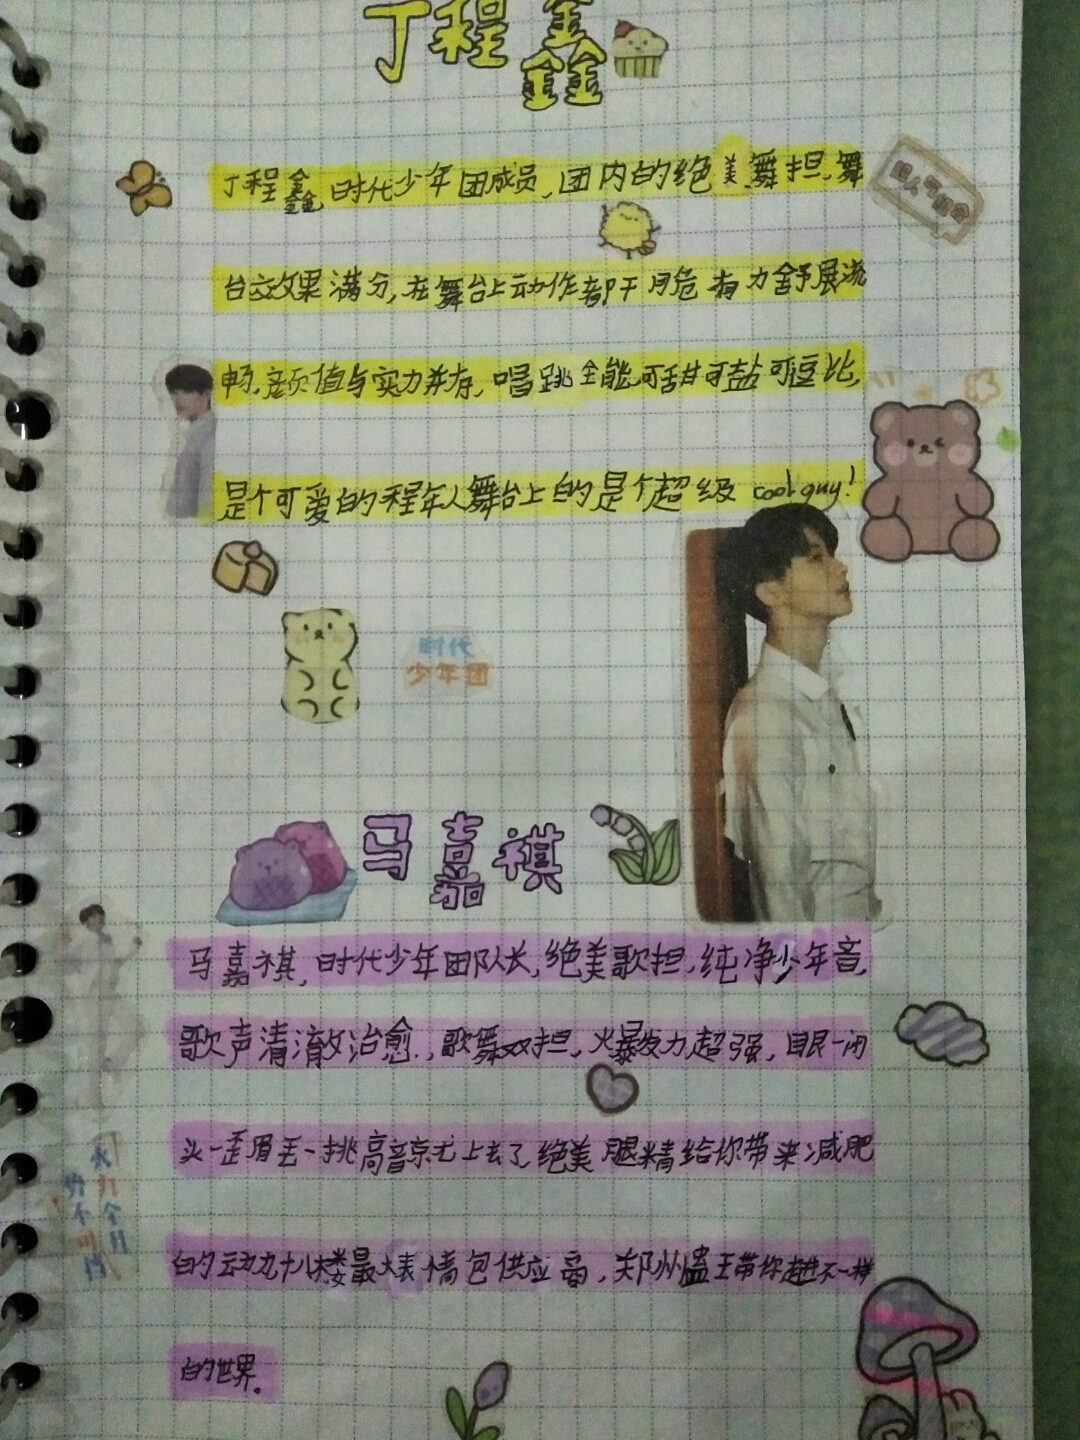 丁程鑫
丁程鑫,时代少年团成员,团内的绝美舞担,舞
台效果满分,在舞台上动作都干脆有力舒展流
畅,颜值与实力并存,唱跳全能可甜可盐可逗比,
是个可爱的程年人舞台上的是个超级 cool guy!
时代
少年团
马嘉祺
马嘉祺,时代少年团队长,绝美歌担,纯净少年音,
歌声清澈治愈,歌舞双担,火爆发力超强,眼一闭
头一歪眉毛一挑高音就上去了绝美腿精给你带来减肥
的动力十八楼最大表情包供应商,郑州蛊王带你走进不一样
的世界。